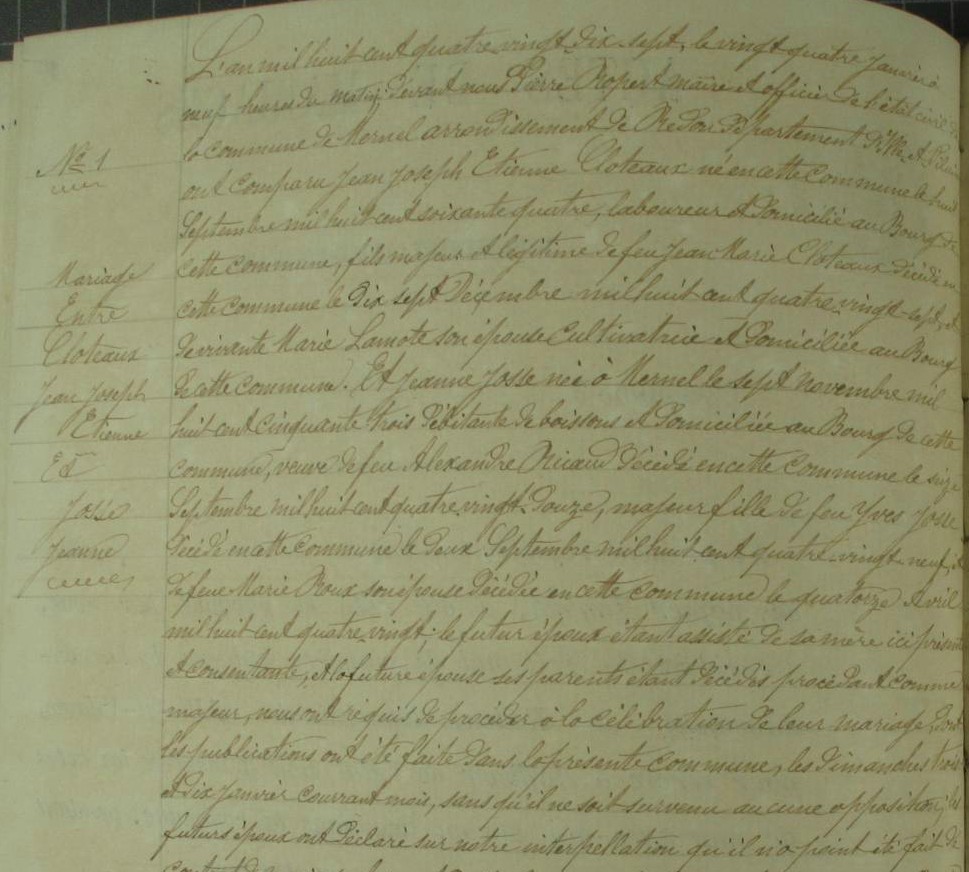 L'an mil huit cent quatre vingt dix sept, le vingt quatre Janvier à
neuf heures du matin, devant nous Pierre Ropert maire et officier de l'état civil de
la commune de Mernel arrondissement de Redon département d'Ille et Vilaine
N° 1
ont comparu Jean Joseph Etienne Cloteaux né en cette commune le huit
Septembre mil huit cent soixante quatre, laboureur et domicilié au Bourg de
cette commune, fils majeur et légitime de feu Jean Marie Cloteaux décédé en
Mariage
cette commune le dix sept Décembre mil huit cent quatre vingt-sept, et
Entre
de vivante Marie Lamote son épouse cultivatrice et domiciliée au Bourg
Cloteaux
de cette commune. Et Jeanne Josse née à Mernel le sept novembre mil
Jean Joseph
huit cent cinquante trois débitante de boissons et domiciliée au Bourg de cette
Etienne
commune, veuve de feu Alexandre Ricaud décédé en cette commune le seize
Et
Septembre mil huit cent quatre vingt-douze, majeur fille de feu Yves Josse
Josse
décédé en cette commune le deux Septembre mil huit cent quatre-vingt-neuf, et
Jeanne
de feue Marie Roux son épouse décédée en cette commune le quatorze Avril
mil huit cent quatre vingt; le futur époux étant assisté de sa mère ici présente
et consentante, et la future épouse ses parents étant décédés procédant comme
majeur, nous ont réquis de procéder à la célébration de leur mariage, dont
les publications ont été faite dans la présente commune, les dimanches trois
et dix Janvier courrant mois, sans qu'il ne soit survenu aucune opposition; les
futurs époux ont déclaré sur notre interpellation qu'il n'a point été fait de